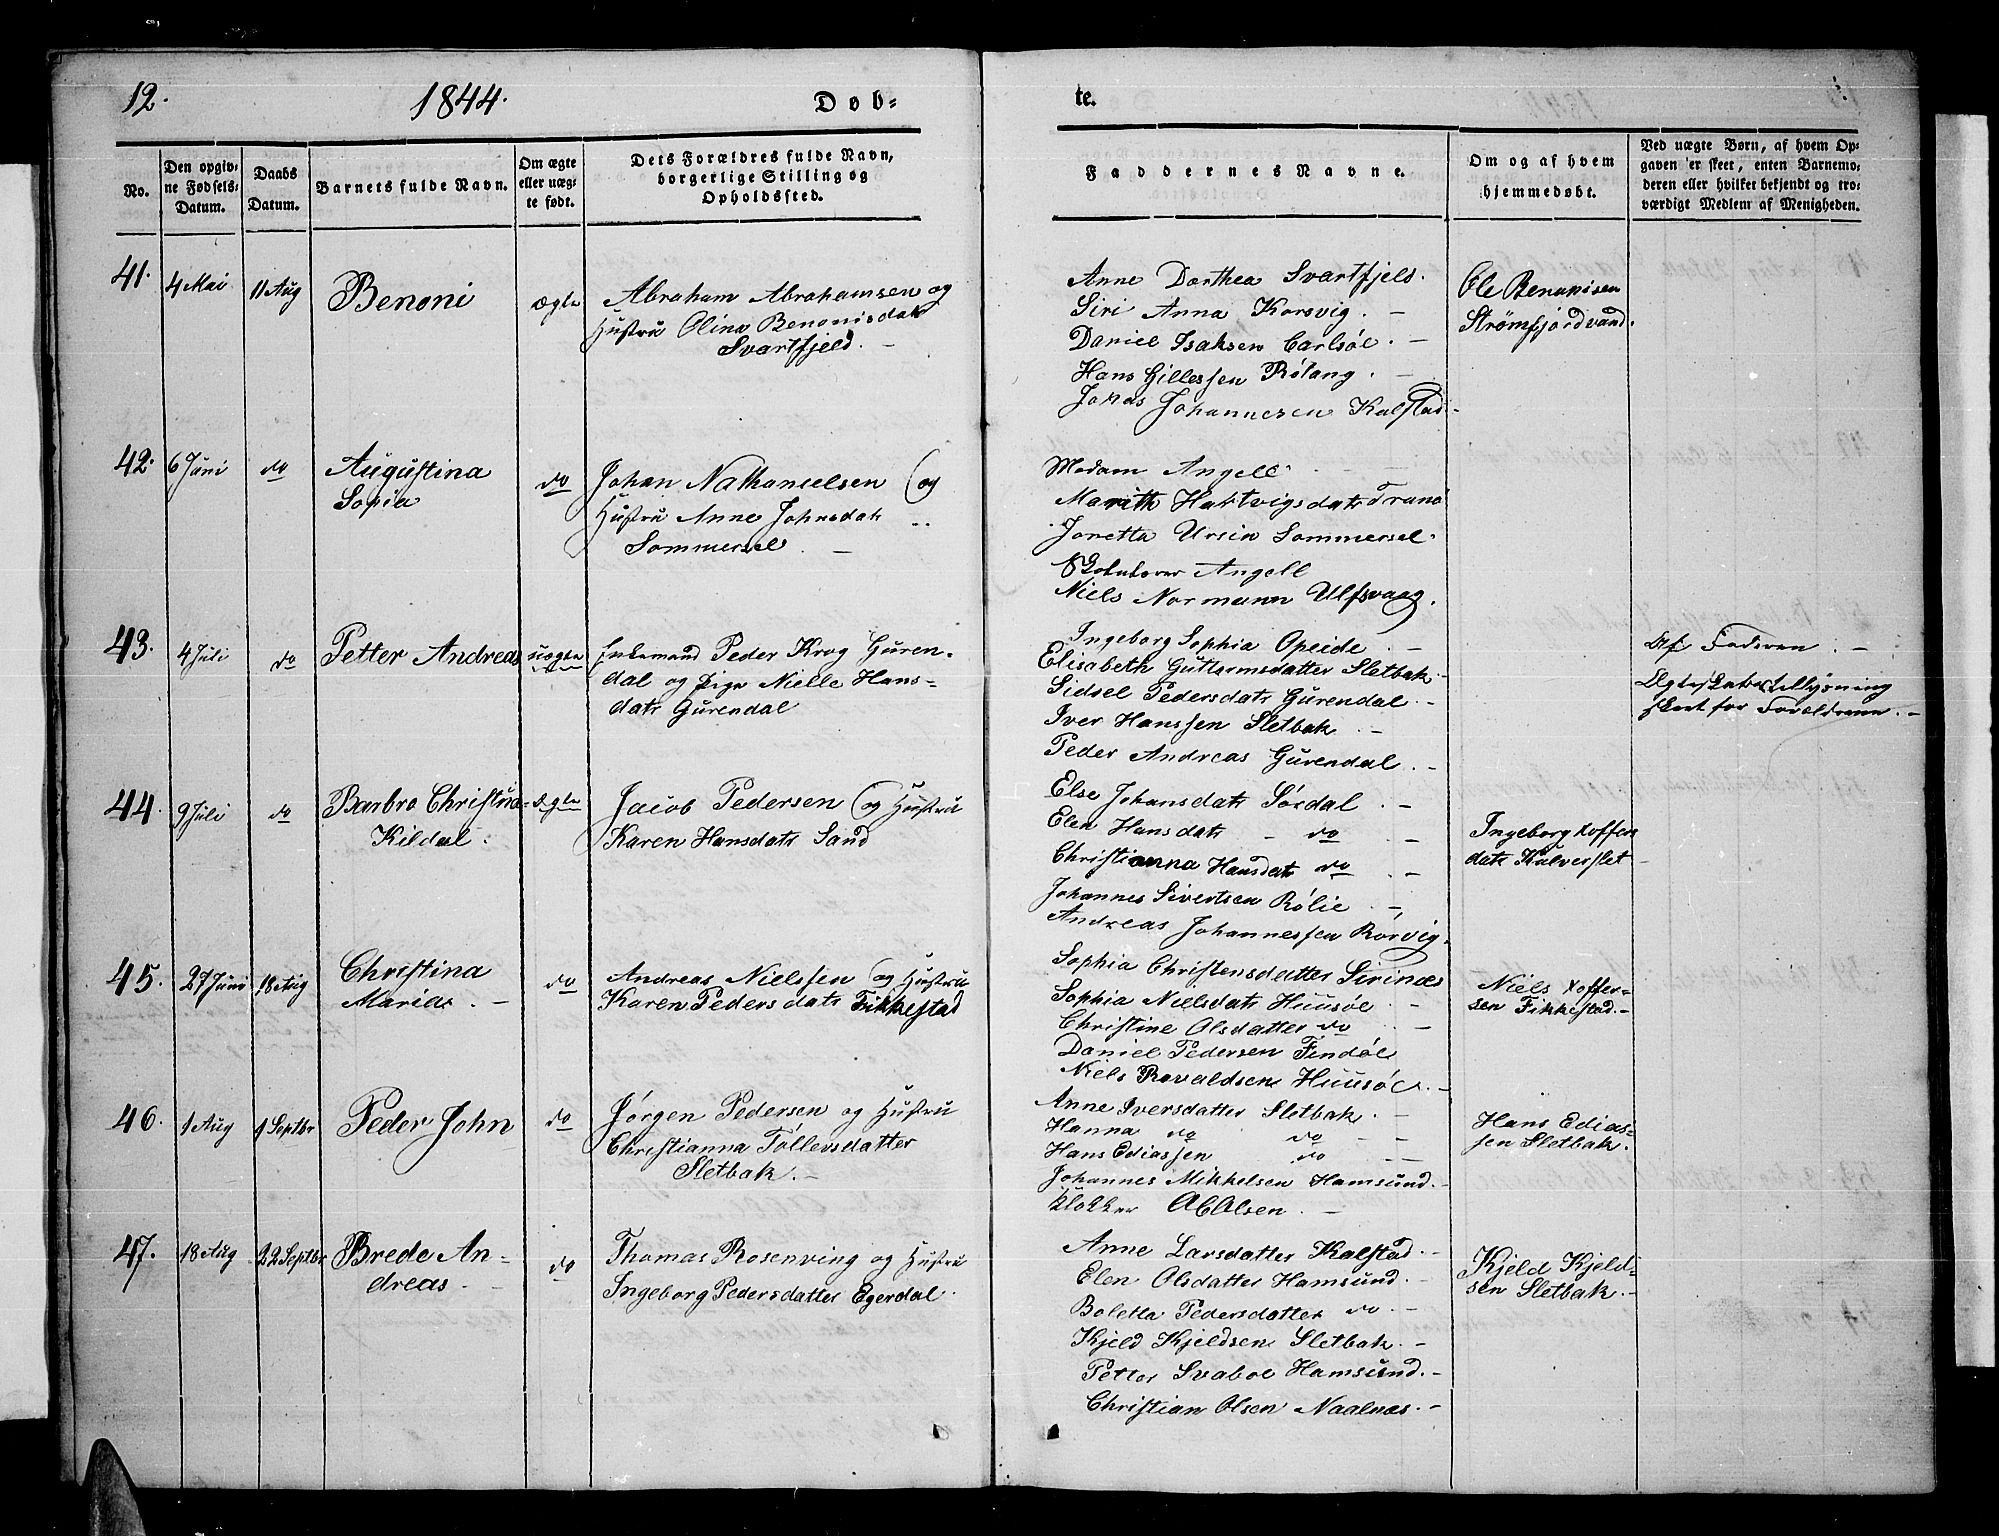 12. 1844. Døb-
te.
No.
Den opgiv-
ne Fødsels-
Datum.
Daabs
Datum.
Barnets fulde Navn.
Om ægte
eller uæg-
te født.
Dets Forældres fulde Navn,
borgerlige Stilling og
Opholdssted.
Faddernes Navne.
Om og af hvem
hjemmedøbt.
Ved uægte Børn, af hvem Op-
gaven er skeet, enten Barnemo-
deren eller hvilket bekjendt og tro-
værdigt Medlem af Menigheden.
41. 4 Mai 11 Aug Benoni ægte
Abraham Abrahamsen og
Hustru Olina Benonisdatr
Svartfjeld. -
Anne Dorthea Svartfjeld.
Siri Anna Korsvig. -
Daniel Isaksen Carlsöe. -
Hans Gillessen Rölang. -
Jonas Johannesen Kalstad. -
Ole Benonisen
Strømfjordvand.
42. 6 Juni do Augustina
Sopia
do
Johan Nathanielsen og
Hustru Anne Johnsdatr
Sommersel. -
Madam Angell
Marith Hartvigsdatr Tranö
Joretta Ursin Sommersel.
Angell
Niels Normann Ulfsvaag.
43. 4 Juli do Petter Andreas uægte
Enkemand Peder Krog Guren-
dal og Pige Nielle Hans-
datr Gurendal
Ingeborg Sophia Opeide. -
Elisabeth Guttormsdatter Sletbak. -
Sidsel Pedersdatr Gurendal. -
Iver Hanssen Sletbak. -
Peder Andreas Gurendal. -
Af Faderen. -
Ægteskabs tillysning
skeet for Forældrene. -
44. 9 Juli do Barbro Christina
Kildal.
ægte
Jacob Pedersen og Hustru
Karen Hansdatr Sand
Else Johansdatr Sördal. -
Elen Hansdatr - do -
Christianna Hansdatr do. -
Johannes Sivertsen Rölie. -
Andreas Johannessen Rörvig. -
Ingeborg Xoffers
datr Kalverslet -
45. 27 Juni 18 Aug Christina
Maria. -
do
Andreas Nielssen og Hustru
Karen Pedersdatr Fikkestad
Sophia Christensdatter Sirinæs
Sophia Nielsdatr Huusöe. -
Christine Olsdatter do. -
Daniel Pedersen Findöe
Niels Rovaldsen Huusöe. -
Niels Xoffer-
sen Fikkestad. -
46. 1 Aug 1 Septbr Peder John do
Jörgen Pedersen og Hustru
Christianna Tollersdatter
Sletbak. -
Anne Iversdatter Sletbak. -
Hanna do do - -
Hans Ediassen do - -
Johannes Mikkelsen Hamsund. -
Klokker Olsen. -
Hans Edias-
sen Sletbak.
47. 18 Aug 22 Septbr Brede An-
dreas. -
do
Thomas Rosenving og Hustru
Ingeborg Pedersdatter Egerdal.
Anne Larsdatter Kalstad. -
Elen Olsdatter Hamsund. -
Boletta Pedersdatter do. -
Kjeld Kjeldsen Sletbak. -
Petter Svaboe Hamsund. -
Christian Olsen Naalnæs. -
Kjeld Kjeld-
sen Sletbak. -